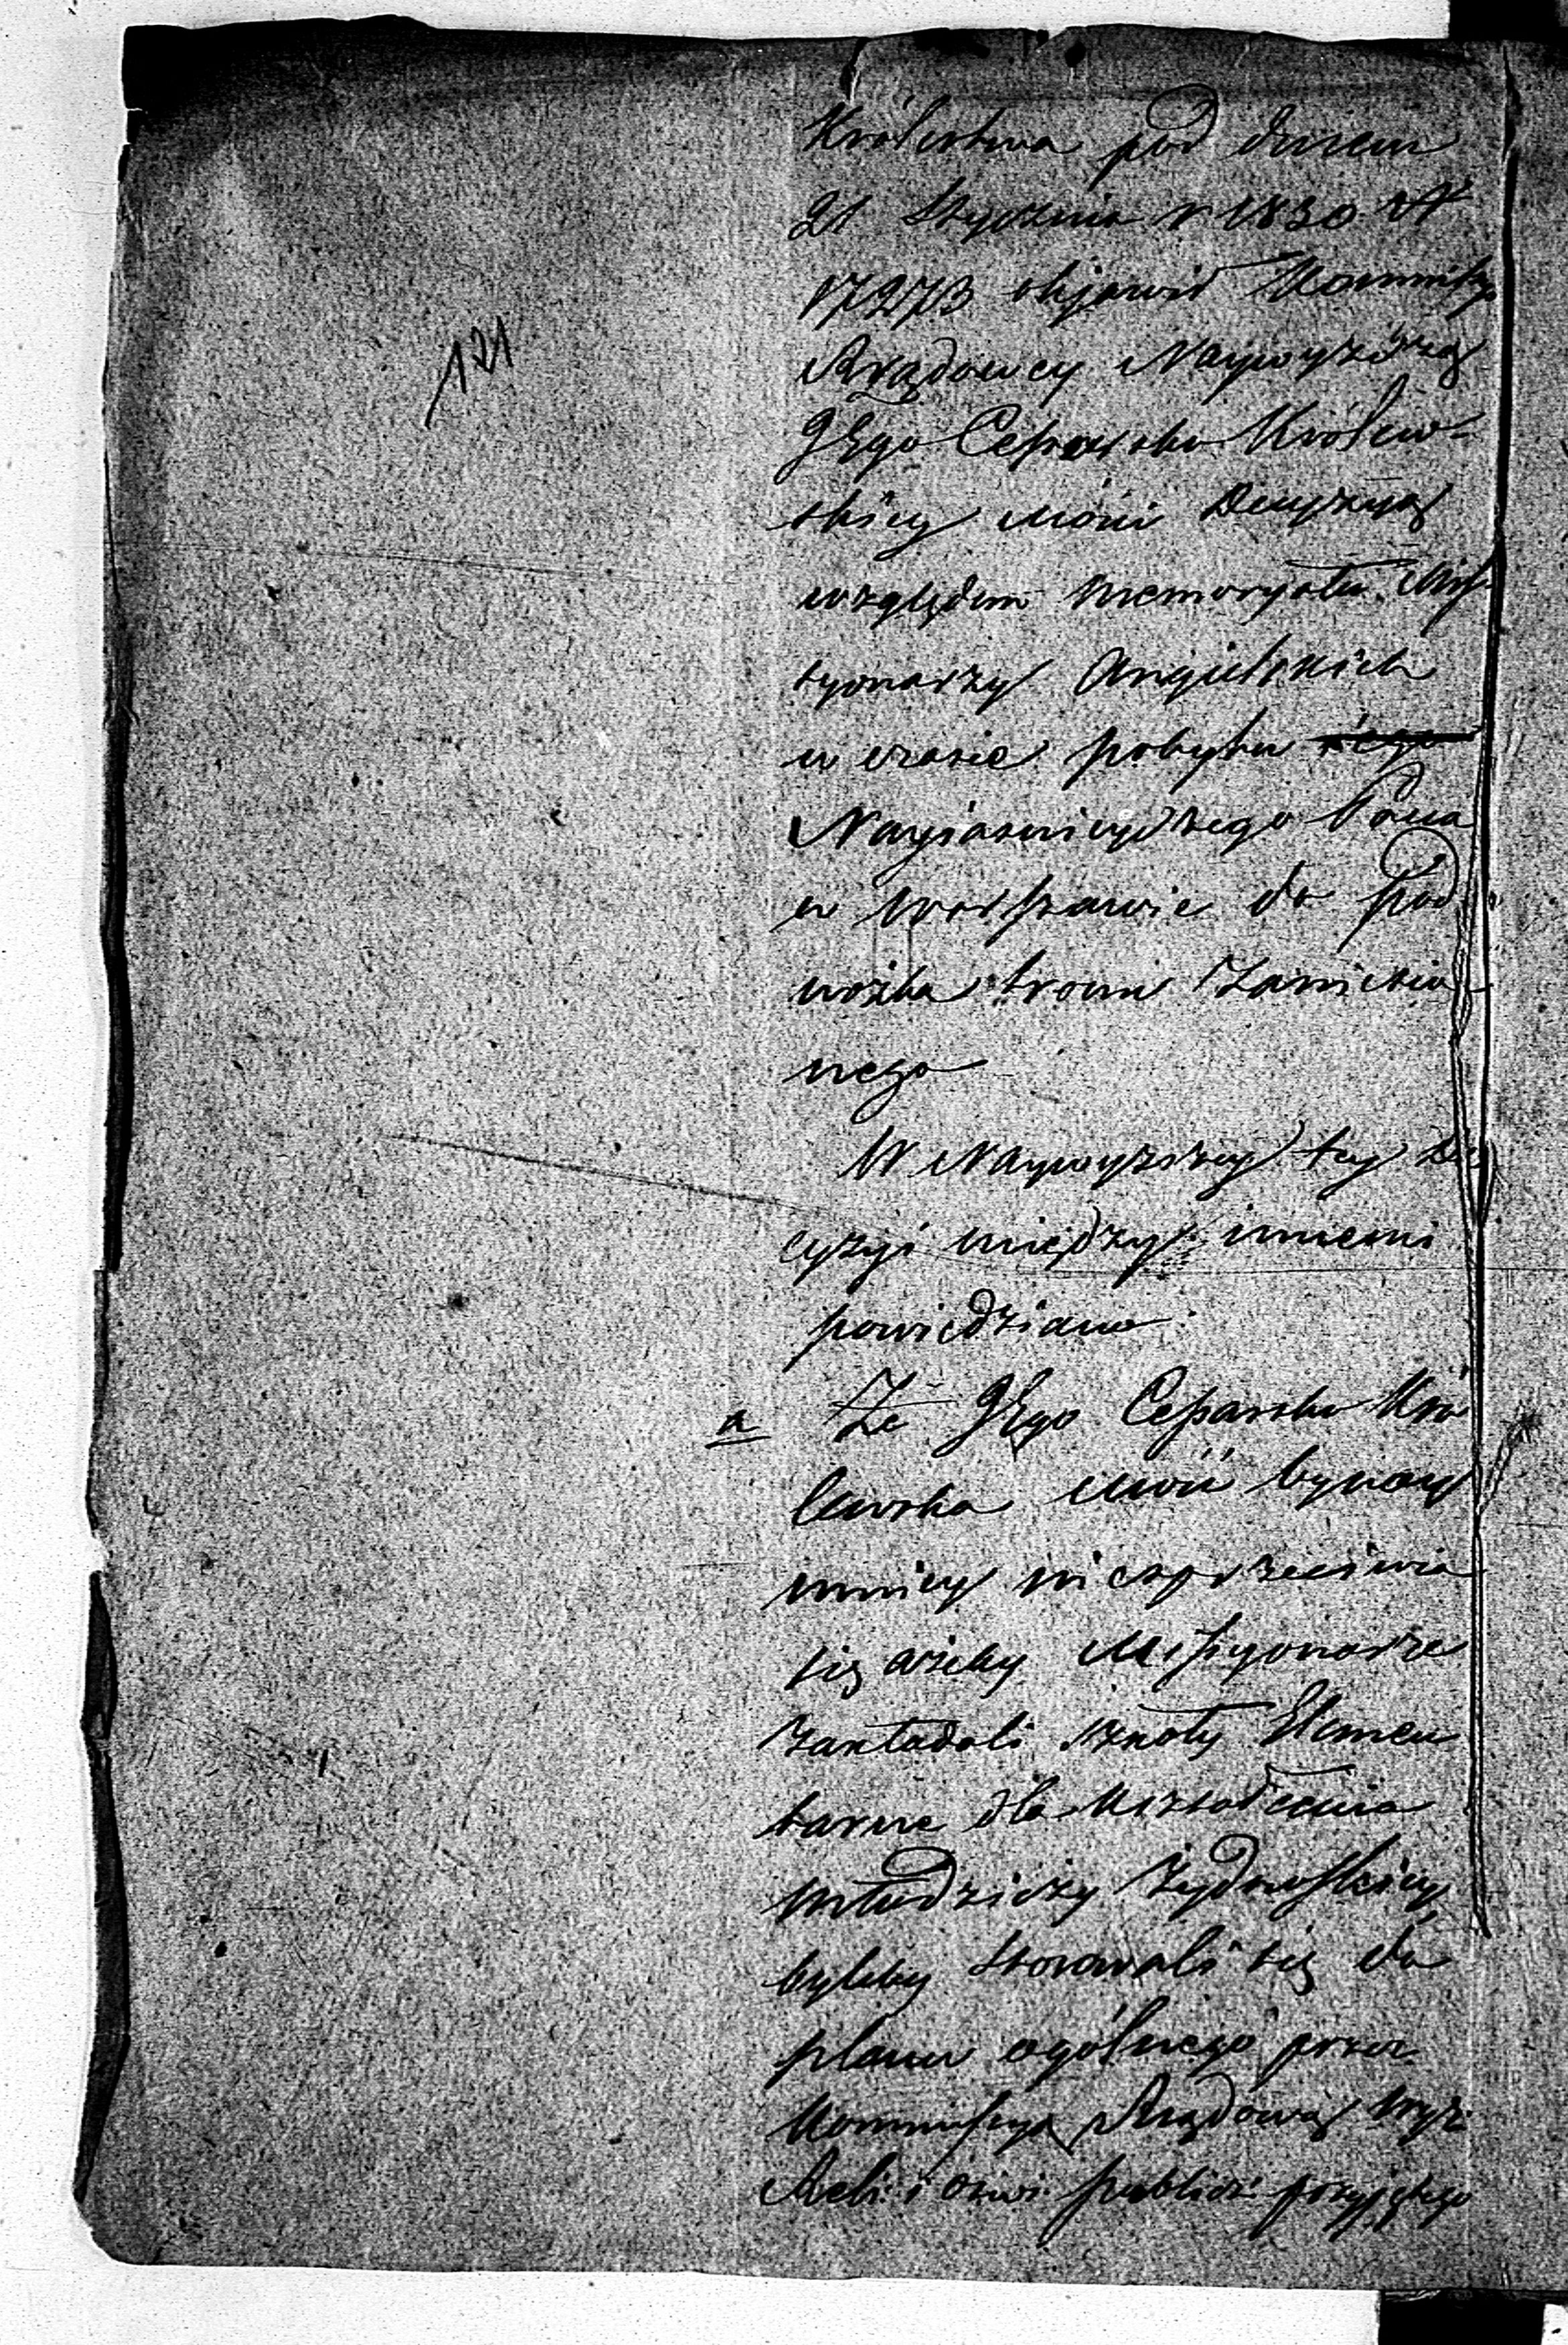 121
Królestwa pod dniem
21 Stycznia r 1830 N
17273 objawił Kommissyi
Rządowey Naywyższą
JEgo Cesarsko Królew-
skiey Mości Decyzyą
względem memoryału Missy
syonarzy Angielskich
w czasie pobytu
Nayiaśnieyszego Pana
w Warszawie do pod
nóżka tronu zaniesio-
nego
W Naywyższey tey De
cyzyi między innemi
powiedziano:
a Że JEgo Cesarsko Kró
lewska Mość bynay
mniey niesprzeciwia
się ażeby Missyonarze
zakładali szkoły Elemen
tarne dla Ukształcenia
młodzieży Żydowskiey
byleby stosowali się do
planu ogólnego przez
Kommissyą Rządową Wyz:
Reli: i Oświ: publicz: przyjętego